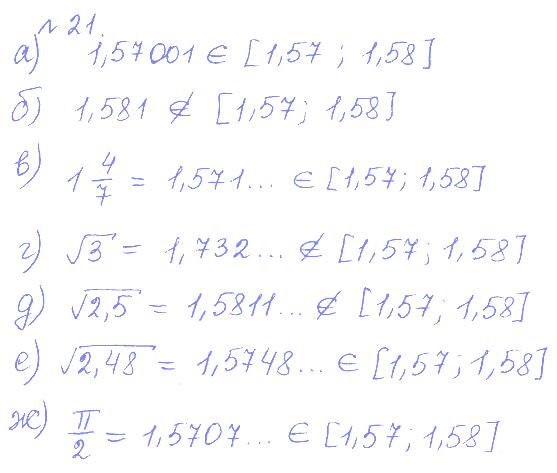 № 21.
а) 1,57001 ∈ [1,57 ; 1,58]
б) 1,581 ∉ [1,57; 1,58]
в) 1 4/7 = 1,571... ∈ [1,57; 1,58]
г) √3 = 1,732... ∉ [1,57; 1,58]
д) √2,5 = 1,5811... ∉ [1,57; 1,58]
е) √2,48 = 1,5748... ∈ [1,57; 1,58]
ж) π/2 = 1,5707... ∈ [1,57; 1,58]